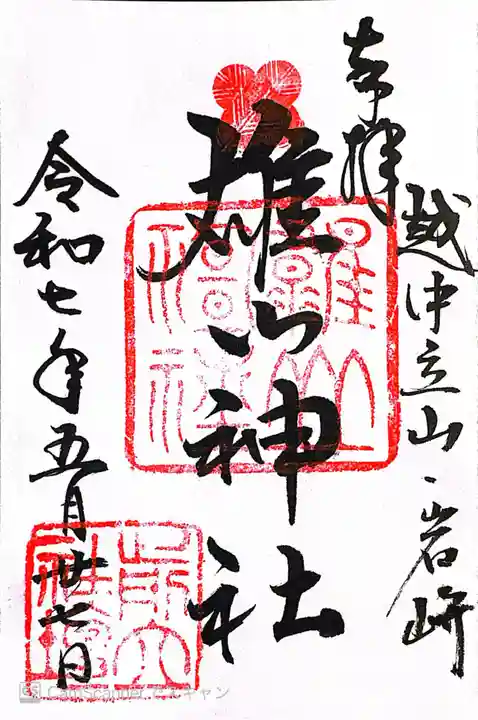 奉拝
越中立山・岩峅
雄山神社
令和七年五月廿七日
CamScanner でスキャン